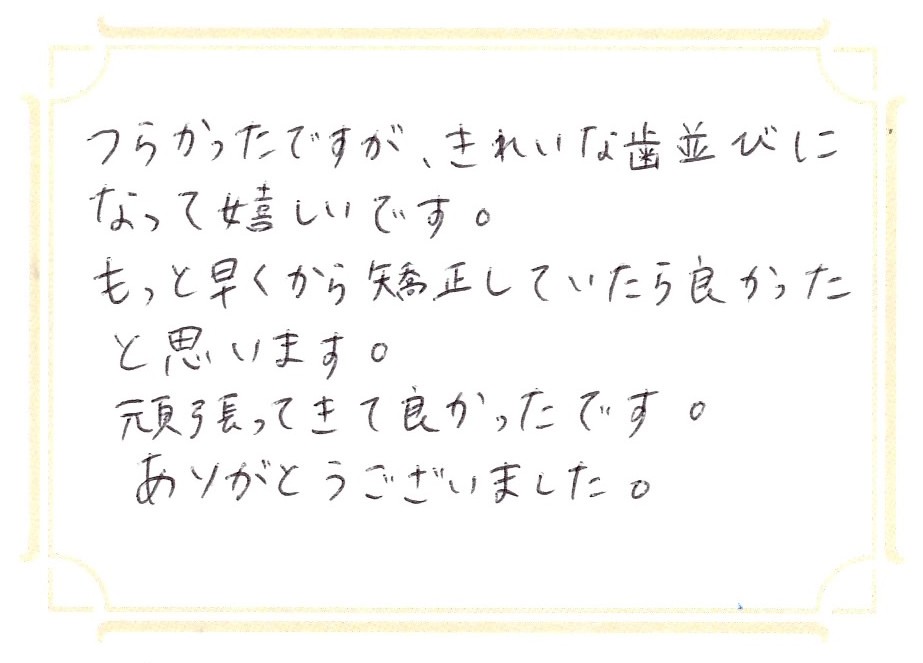 つらかったですが、きれいな歯並びに
なって嬉しいです。
もっと早くから矯正していたら良かった
と思います。
頑張ってきて良かったです。
ありがとうございました。